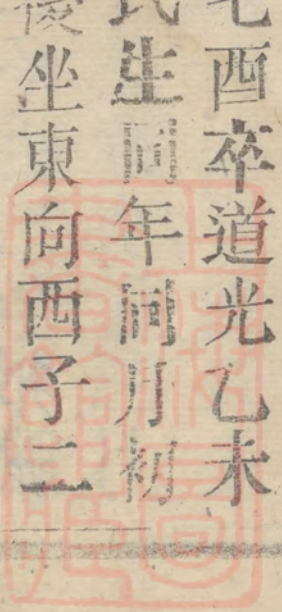 酉卒道光乙未
氏生同年同月初
坐東向酉子二